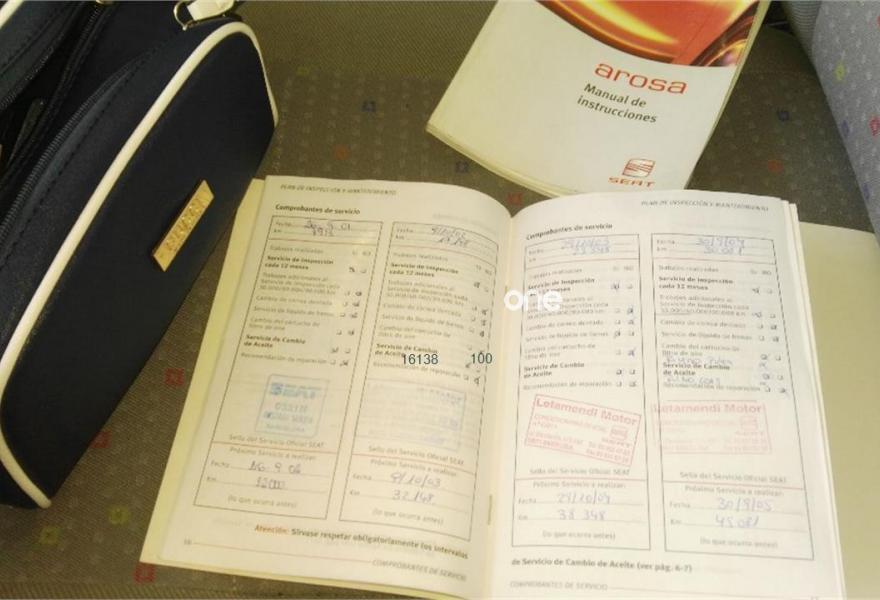 arosa
Manual de
instrucciones
SEAT
PLAN DE INSPECCIÓN Y MANTENIMIENTO
Comprobantes de servicio
Fecha
Km
Trabajos realizados SI NO
Servicio de inspección
cada 12 meses
Trabajos adicionales al
Servicio de Inspección cada
Cambio de correa dentada
Servicio de líquido de frenos
Cambio del cartucho de
filtro de aire
Servicio de Cambio
de Aceite
Recomendación de reparación
SEAT
Sello del Servicio Oficial SEAT
Próximo Servicio a realizar:
Fecha
Km
(lo que ocurra antes)
Fecha 9/10/02
Km
Trabajos realizados SI NO
Servicio de inspección
cada 12 meses
Trabajos adicionales al
Servicio de Inspección cada
Cambio de correa dentada
Servicio de líquido de frenos
Cambio del cartucho de
filtro de aire
Servicio de Cambio
de Aceite
Recomendación de reparación
16138 100
Sello del Servicio Oficial SEAT
Próximo Servicio a realizar:
Fecha 9/10/03
Km 32.148
(lo que ocurra antes)
Atención: Sírvase respetar obligatoriamente los intervalos
COMPROBANTES DE SERVICIO
PLAN DE INSPECCIÓN Y MANTENIMIENTO
Comprobantes de servicio
Fecha 29/10/03
Km 23348
Trabajos realizados SI NO
Servicio de inspección
cada 12 meses
one
Trabajos adicionales al
Servicio de Inspección cada
Cambio de correa dentada
Servicio de líquido de frenos
Cambio del cartucho de
filtro de aire
Servicio de Cambio
de Aceite
Recomendación de reparación
Letamendi Motor
Sello del Servicio Oficial SEAT
Próximo Servicio a realizar:
Fecha 29/10/04
Km 38 348
(lo que ocurra antes)
Fecha 30/9/04
Km 30.081
Trabajos realizados SI NO
Servicio de inspección
cada 12 meses
Trabajos adicionales al
Servicio de Inspección cada
Cambio de correa dentada
Servicio de líquido de frenos
Cambio del cartucho de
filtro de aire
Servicio de Cambio
de Aceite
Recomendación de reparación
Letamendi Motor
Sello del Servicio Oficial SEAT
Próximo Servicio a realizar:
Fecha 30/9/05
Km 45081
(lo que ocurra antes)
de Servicio de Cambio de Aceite (ver pág. 6-7)
COMPROBANTES DE SERVICIO